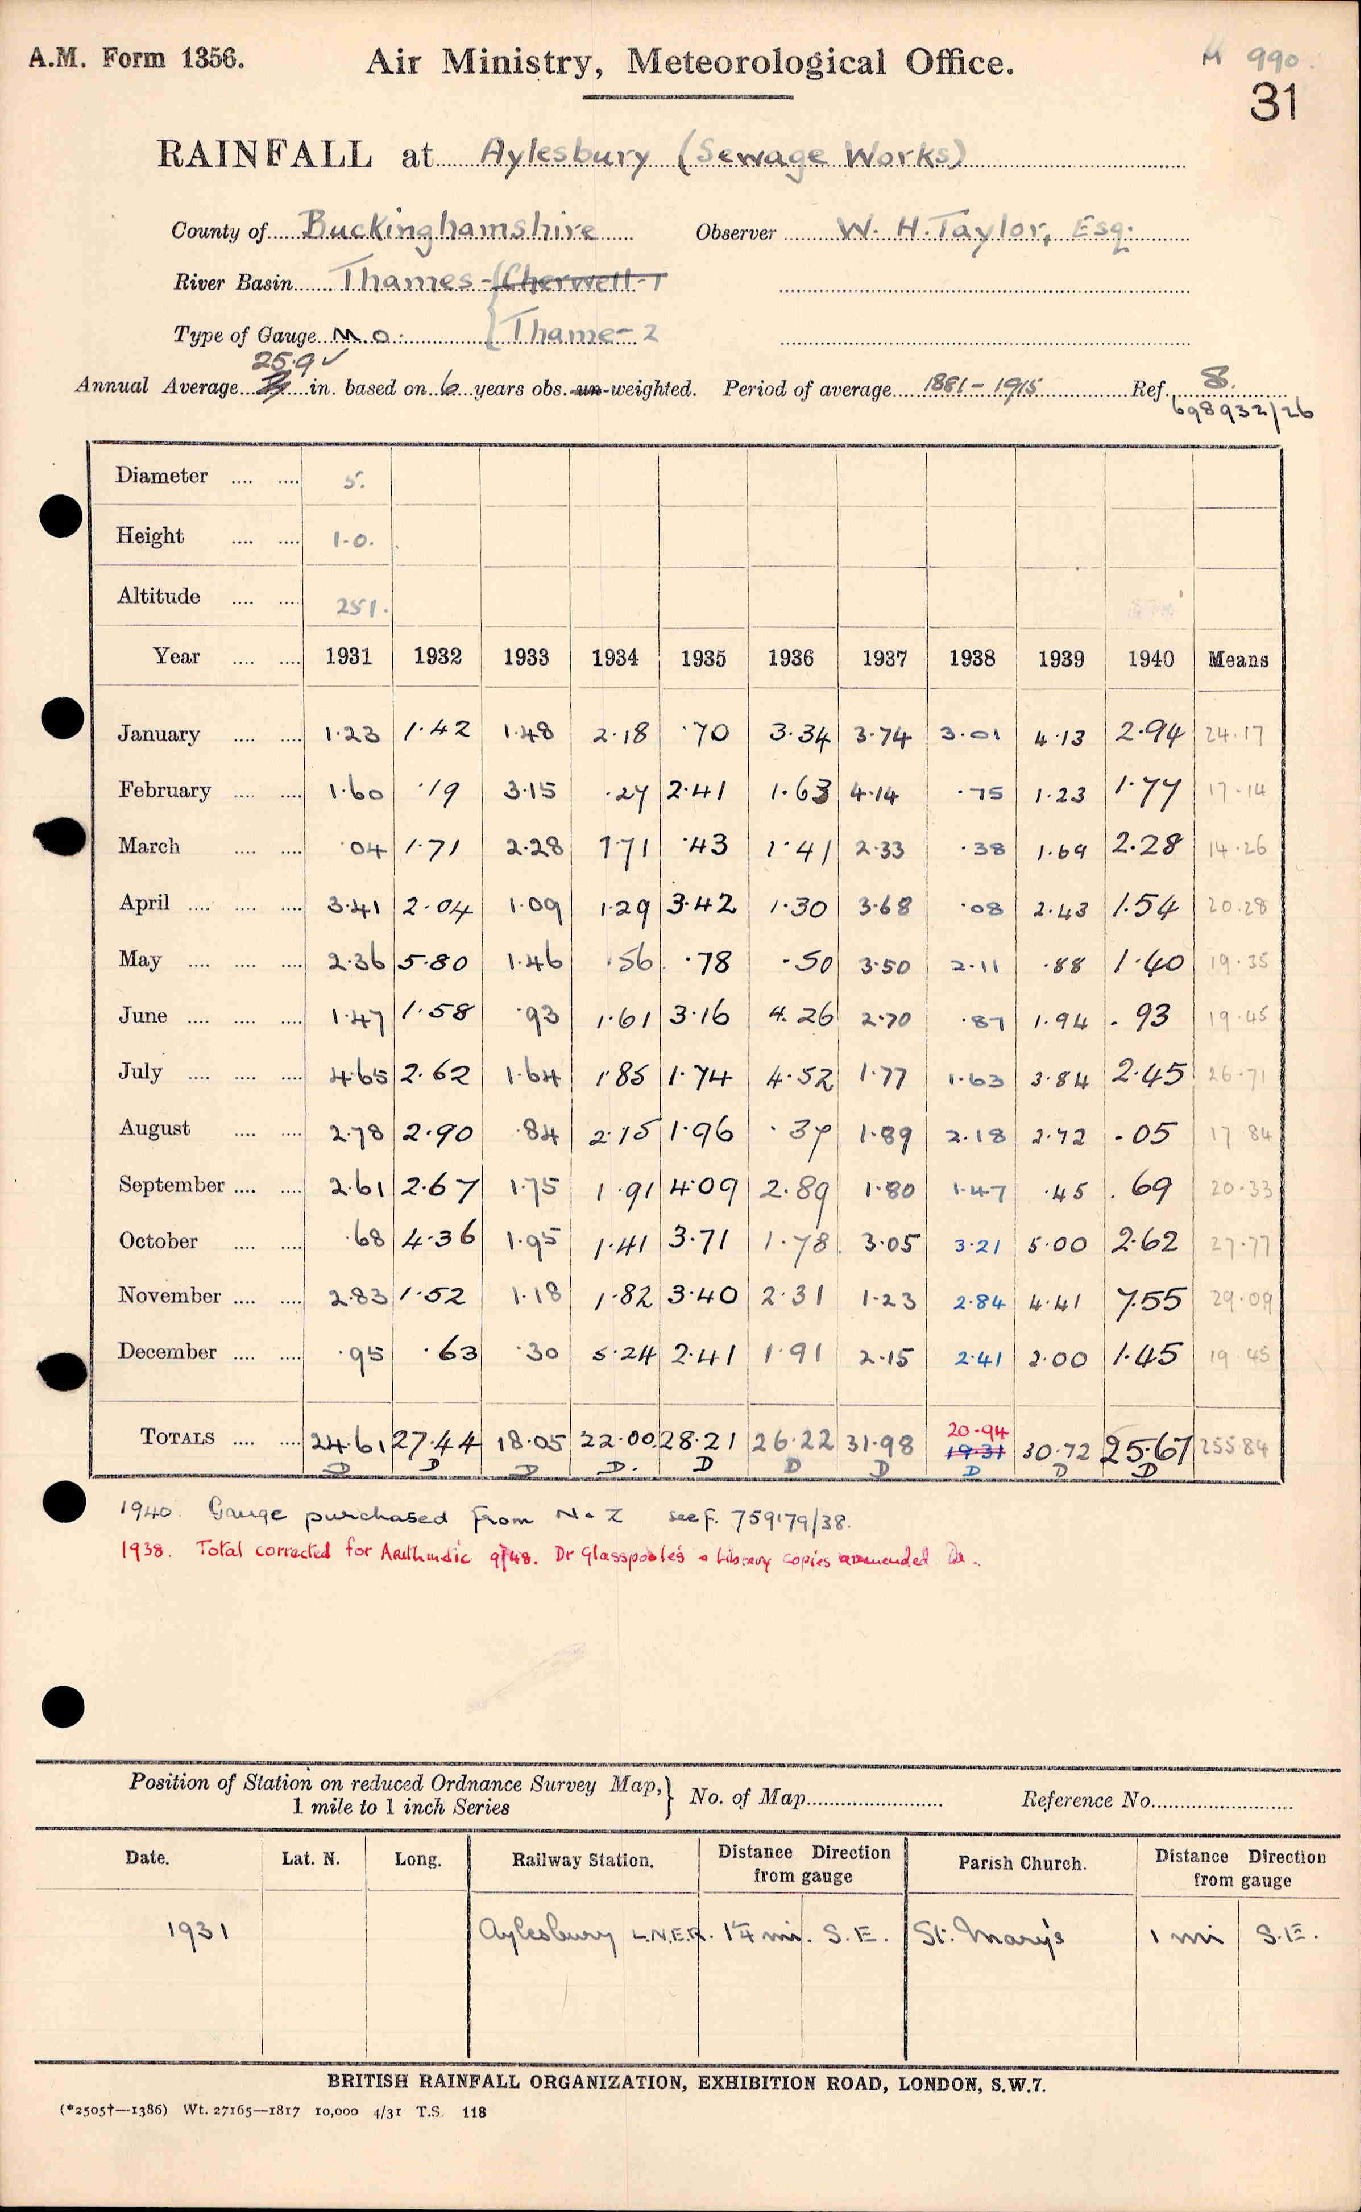 A.M. Form 1356.
Air Ministry, Meteorological Office.
M 990.
31
RAINFALL at Aylesbury (Sewage Works)
County of Buckinghamshire Observer W. H. Taylor, Esq.
River Basin Thames - { Cherwell-1
Type of Gauge M.O. { Thame-2
25.9 ✓
Annual Average in. based on 6 years obs. un-weighted. Period of average 1881-1915 Ref. 8.
698932/26
Diameter .... .... 5.
Height .... .... 1-0.
Altitude .... .... 251.
Year .... .... 1931 1932 1933 1934 1935 1936 1937 1938 1939 1940 Means
January .... .... 1.23 1.42 1.48 2.18 .70 3.34 3.74 3.01 4.13 2.94 24.17
February .... .... 1.60 .19 3.15 .27 2.41 1.63 4.14 .75 1.23 1.77 17.14
March .... .... .04 1.71 2.28 1.71 .43 1.41 2.33 .38 1.69 2.28 14.26
April .... .... .... 3.41 2.04 1.09 1.29 3.42 1.30 3.68 .08 2.43 1.54 20.28
May .... .... .... 2.36 5.80 1.46 .56 .78 .50 3.50 2.11 .88 1.40 19.35
June .... .... .... 1.47 1.58 .93 1.61 3.16 4.26 2.70 .87 1.94 .93 19.45
July .... .... .... 4.65 2.62 1.64 1.85 1.74 4.52 1.77 1.63 3.84 2.45 26.71
August .... .... 2.78 2.90 .84 2.15 1.96 .37 1.89 2.18 2.72 .05 17.84
September .... .... 2.61 2.67 1.75 1.91 4.09 2.89 1.80 1.47 .45 .69 20.33
October .... .... .68 4.36 1.95 1.41 3.71 1.78 3.05 3.21 5.00 2.62 27.77
November .... .... 2.83 1.52 1.18 1.82 3.40 2.31 1.23 2.84 4.41 7.55 29.09
December .... .... .95 .63 .30 5.24 2.41 1.91 2.15 2.41 2.00 1.45 19.45
20.94
TOTALS .... .... 24.61 27.44 18.05 22.00 28.21 26.22 31.98 19.31 30.72 25.67 255.84
D D D D. D D D D D D
1940. Gauge purchased from N-Z see f. 759179/38.
1938. Total corrected for Arithmetic 9/48. Dr Glasspoole's & Library copies ammended
Position of Station on reduced Ordnance Survey Map, } No. of Map Reference No.
1 mile to 1 inch Series
Date. Lat. N. Long. Railway Station. Distance Direction from gauge Parish Church. Distance Direction from gauge
1931 Aylesbury L.N.E.R. 1¼ mi. S.E. St. Mary's 1 mi S.E.
BRITISH RAINFALL ORGANIZATION, EXHIBITION ROAD, LONDON, S.W.7.
(*2505†—1386) Wt. 27165—1817 10,000 4/31 T.S. 118